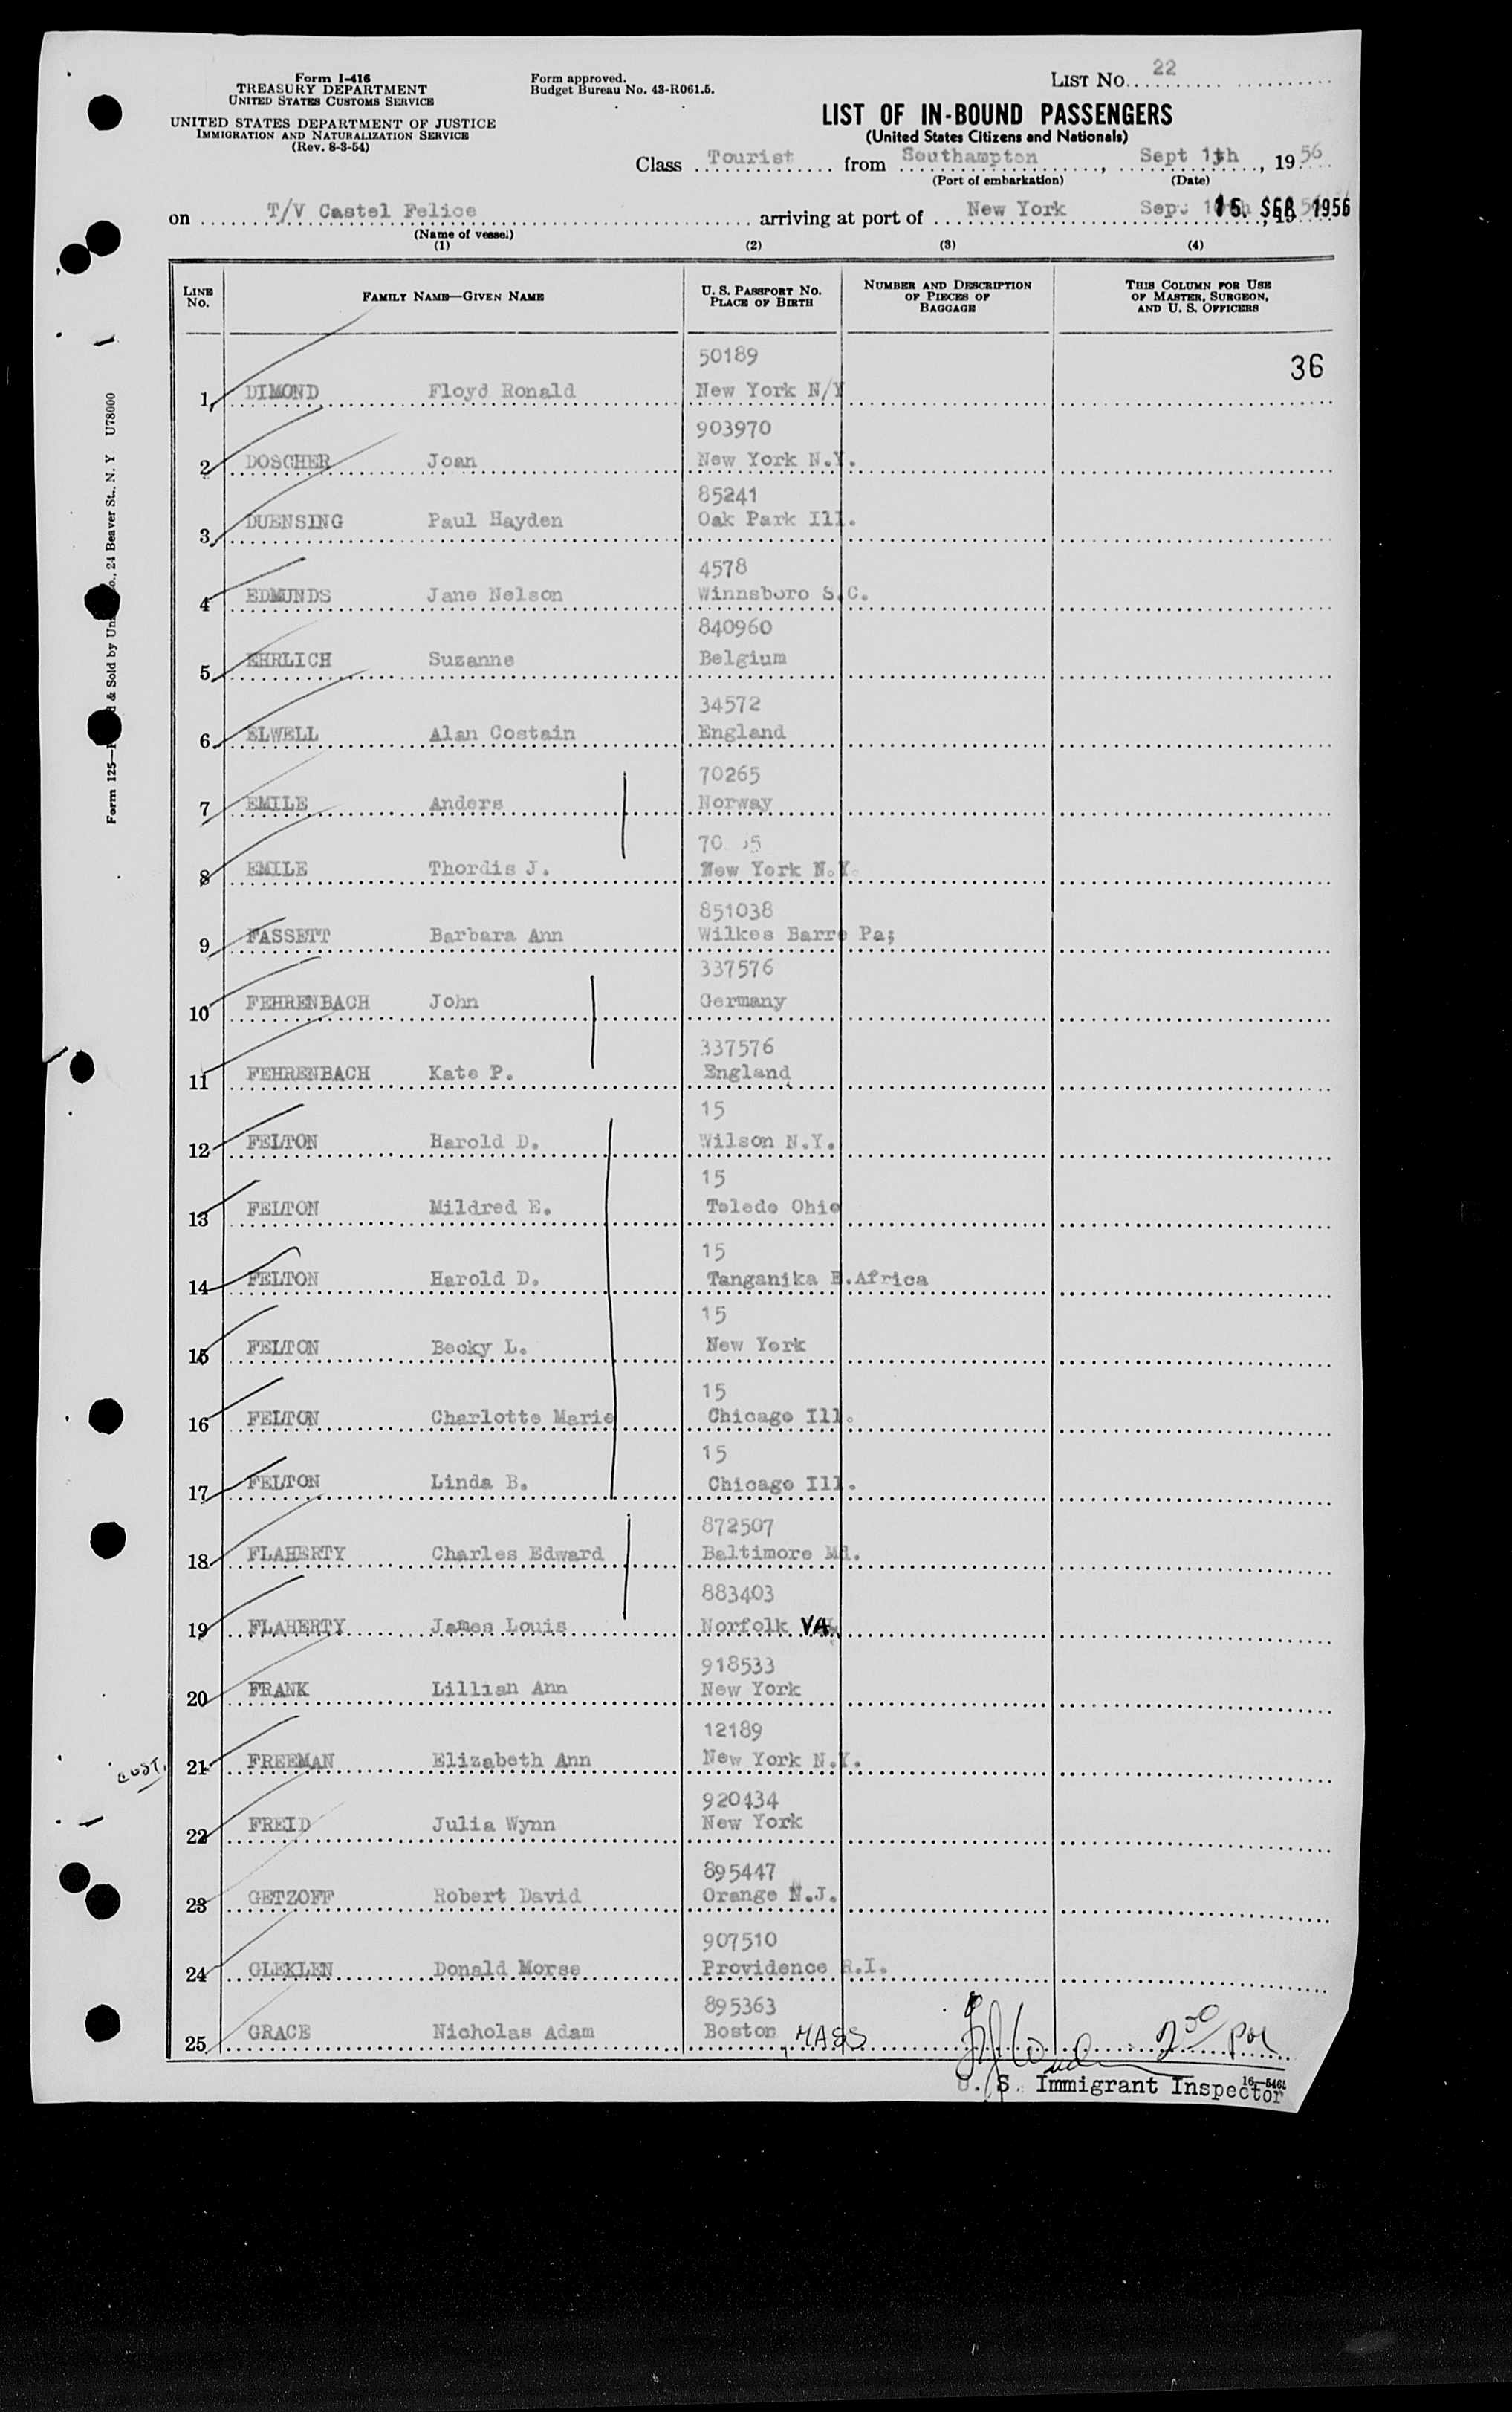 Form I-416
TREASURY DEPARTMENT
UNITED STATES CUSTOMS SERVICE
UNITED STATES DEPARTMENT OF JUSTICE
IMMIGRATION AND NATURALIZATION SERVICE
(Rev. 8-3-54)
Form approved.
Budget Bureau No. 43-R061.5.
LIST No. 22
LIST OF IN-BOUND PASSENGERS
(United States Citizens and Nationals)
Class Tourist from Southampton, Sept, 1956
(Port of embarkation) (Date)
on T/V Castel Felice arriving at port of New York Sep. 19
SEP 1956
(Name of vessel)
(1) (2) (3) (4)
LINE No. FAMILY NAME—GIVEN NAME U. S. PASSPORT No. PLACE OF BIRTH NUMBER AND DESCRIPTION OF PIECES OF BAGGAGE THIS COLUMN FOR USE OF MASTER, SURGEON, AND U. S. OFFICERS
36
50189
1 DIMOND Floyd Ronald New York N/Y
903970
2 DOSCHER Joan New York N.Y.
85241
3 DUENSING Paul Hayden Oak Park Ill.
4578
4 EDMUNDS Jane Nelson Winnsboro S.C.
840960
5 EHRLICH Suzanne Belgium
34572
6 ELWELL Alan Costain England
70265
7 EMILE Anders Norway
70 5
8 EMILE Thordis J. New York N.Y.
851038
9 FASSETT Barbara Ann Wilkes Barre Pa;
337576
10 FEHRENBACH John Germany
337576
11 FEHRENBACH Kate P. England
15
12 FELTON Harold D. Wilson N.Y.
15
13 FELTON Mildred E. Toledo Ohio
15
14 FELTON Harold D. Tanganika E.Africa
15
15 FELTON Becky L. New York
15
16 FELTON Charlotte Marie Chicago Ill.
15
17 FELTON Linda B. Chicago Ill.
872507
18 FLAHERTY Charles Edward Baltimore Md.
883403
19 FLAHERTY James Louis Norfolk VA.
918533
20 FRANK Lillian Ann New York
12189
21 FREEMAN Elizabeth Ann New York N.Y.
920434
22 FREID Julia Wynn New York
895447
23 GETZOFF Robert David Orange N.J.
907510
24 GLEKLEN Donald Morse Providence R.I.
895363
25 GRACE Nicholas Adam Boston, MASS
U. S. Immigrant Inspector
Form 125— & Sold by Un Co., 24 Beaver St., N. Y U78000